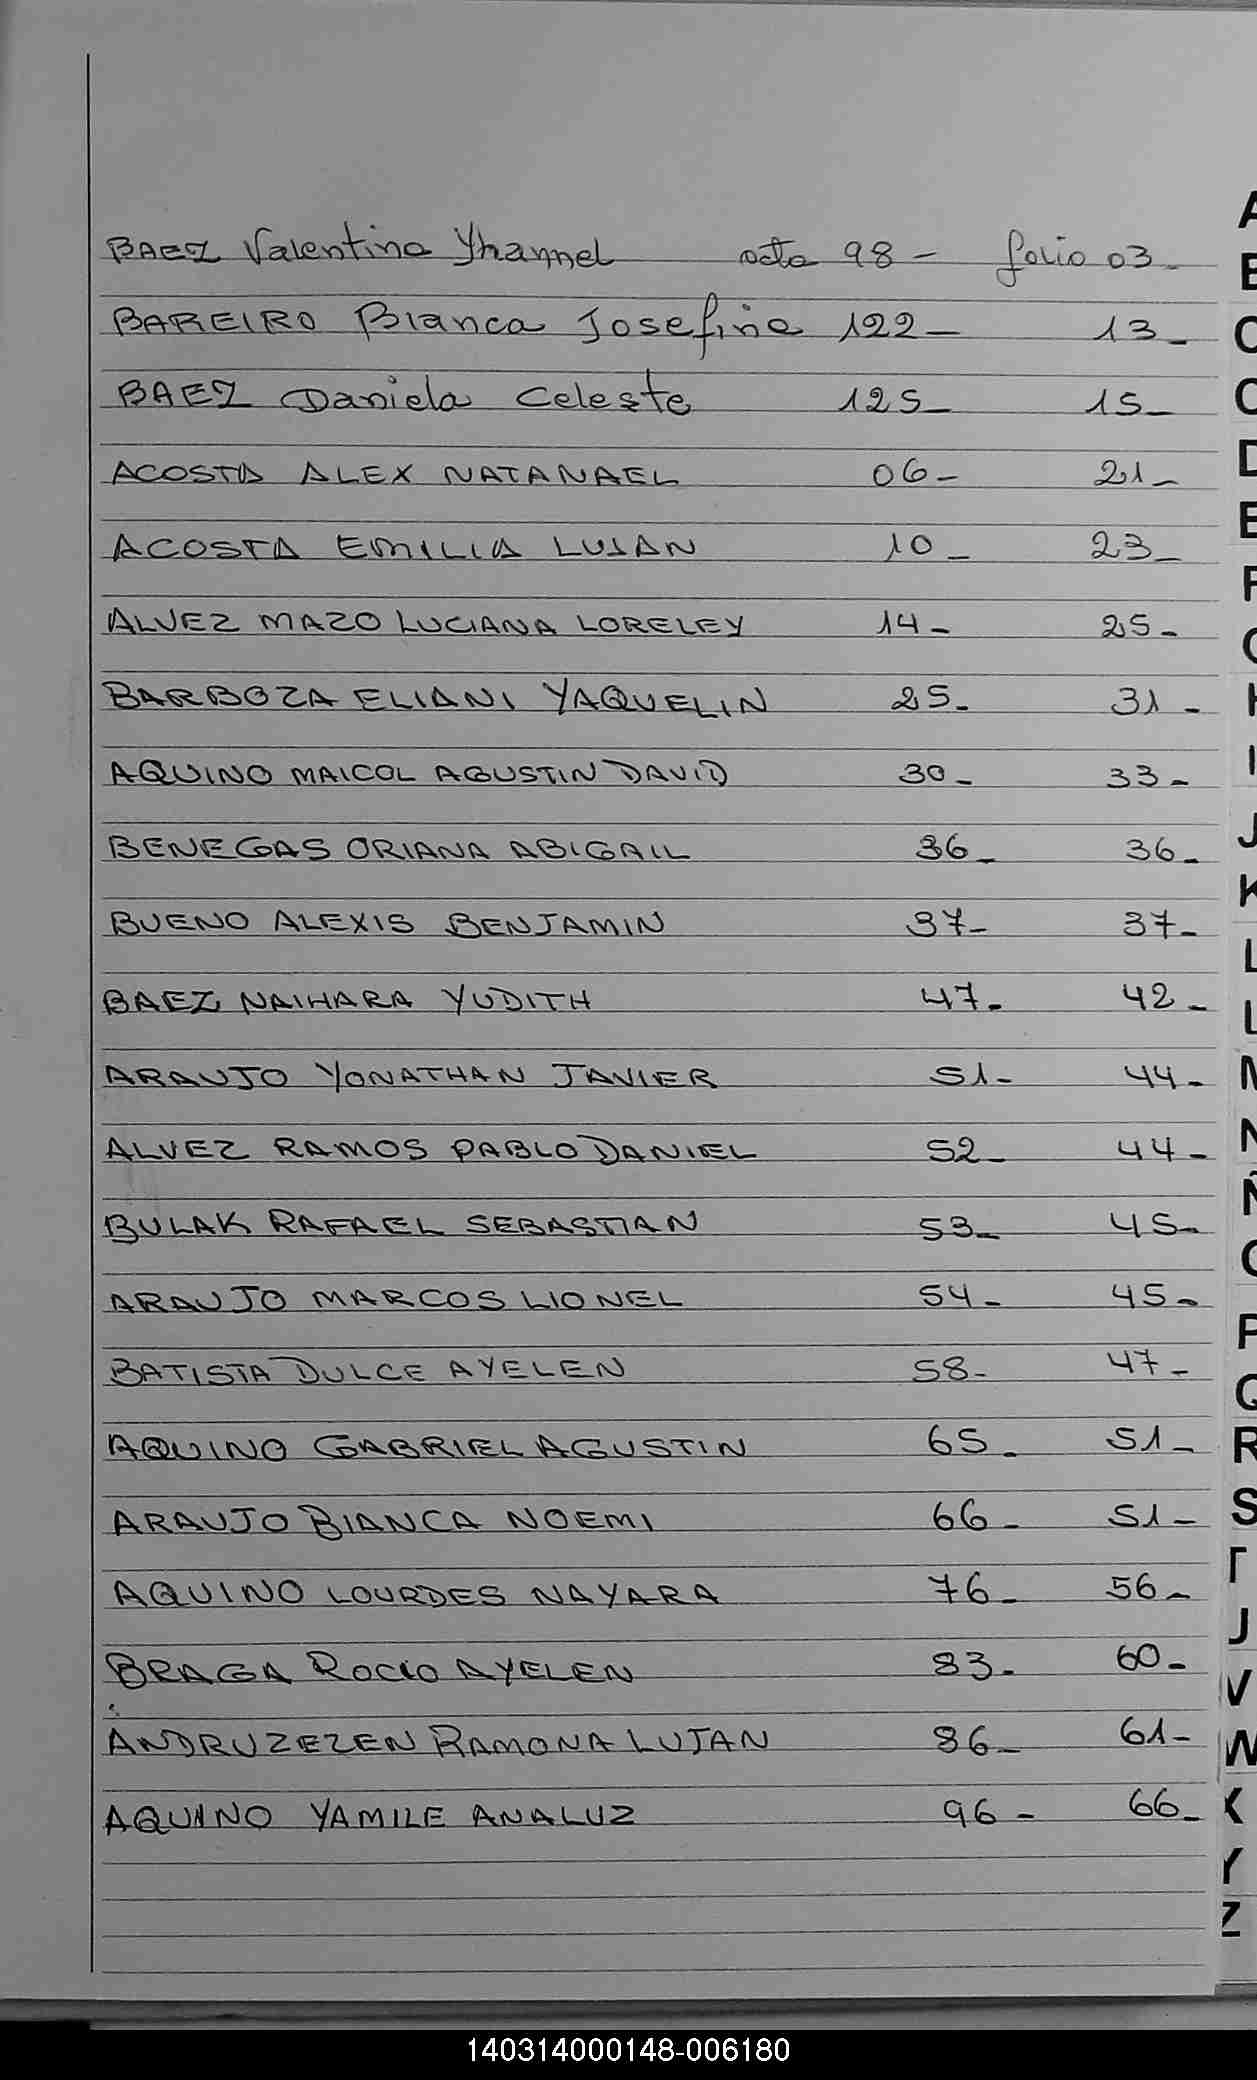 BAEZ Valentina Yhannel acta 98 - folio 03 -
BAREIRO Bianca Josefina 122 - 13 -
BAEZ Daniela Celeste 125 - 15 -
ACOSTA ALEX NATANAEL 06 - 21 -
ACOSTA EMILIA LUJAN 10 - 23 -
ALVEZ MAZO LUCIANA LORELEY 14 - 25 -
BARBOZA ELIANI YAQUELIN 25 - 31 -
AQUINO MAICOL AGUSTIN DAVID 30 - 33 -
BENEGAS ORIANA ABIGAIL 36 - 36 -
BUENO ALEXIS BENJAMIN 37 - 37 -
BAEZ NAIHARA YUDITH 47 - 42 -
ARAUJO YONATHAN JAVIER 51 - 44 -
ALVEZ RAMOS PABLO DANIEL 52 - 44 -
BULAK RAFAEL SEBASTIAN 53 - 45 -
ARAUJO MARCOS LIONEL 54 - 45 -
BATISTA DULCE AYELEN 58 - 47 -
AQUINO GABRIEL AGUSTIN 65 - 51 -
ARAUJO BIANCA NOEMI 66 - 51 -
AQUINO LOURDES NAYARA 76 - 56 -
BRAGA ROCIO AYELEN 83 - 60 -
ANDRUZEZEN RAMONA LUJAN 86 - 61 -
AQUINO YAMILE ANALUZ 96 - 66 -
A
B
C
C
D
E
F
G
H
I
J
K
L
L
M
N
Ñ
O
P
Q
R
S
T
U
V
W
X
Y
Z
140314000148-006180